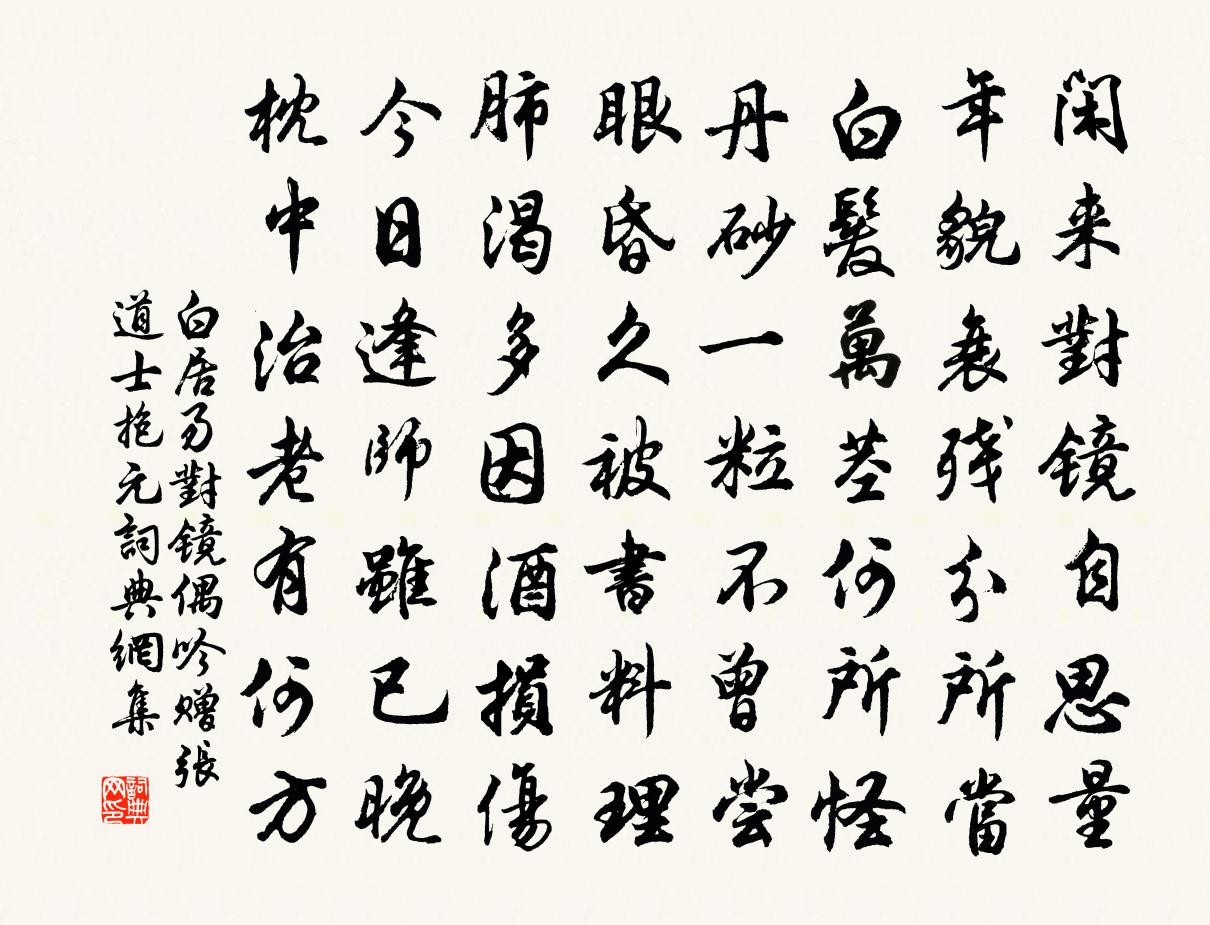 闲来對镜自思量
年貌衰残分所當
白髮萬茎何所怪
丹砂一粒不曾尝
眼昏久被書料理
肺渴多因酒損傷
今日逢師雖已晚
枕中治老有何方
白居易對镜偶吟赠張
道士抱元詞典網集
詞典
网印